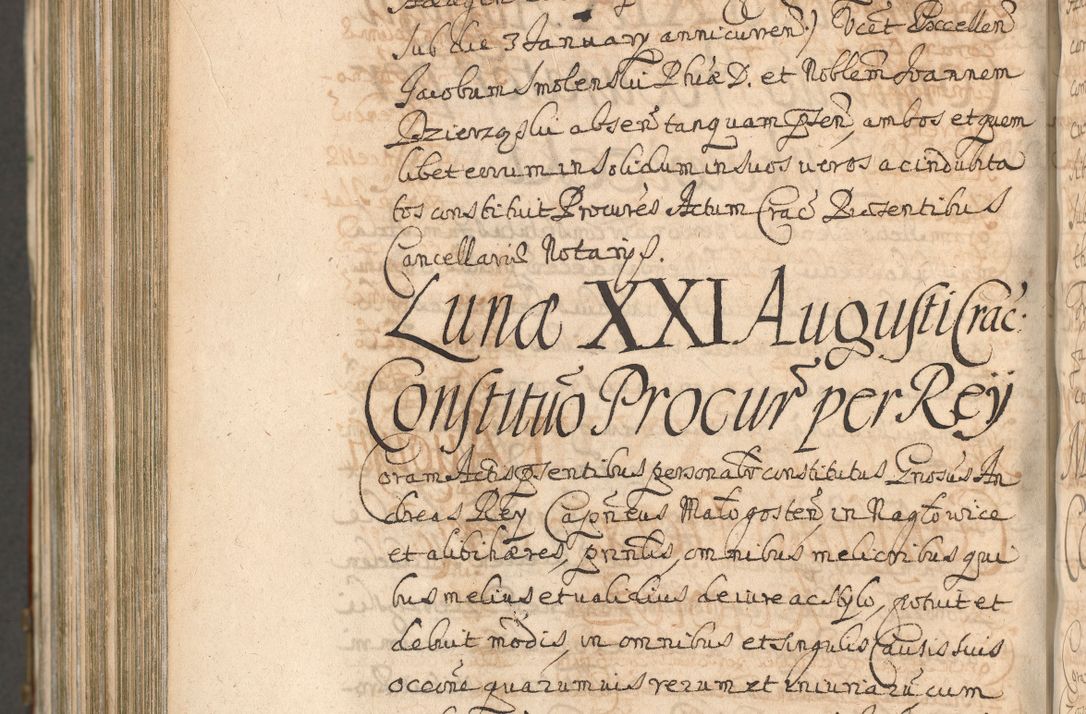 sub die 3 January anni curren̄) Vcet Excellen̄
Jacobum Smolenski Phiæ D. et Noblem̄ Joannem
Dzierzgski absen̄ tanquam p̄sen̄, ambos et quem
libet eorum in solidum in suos veros ac indubita
tos constituit Procures Actum Crac̄ Præsentibus
Cancellariæ Notarijs.
Lunæ XXI Augusti Crac̄:
Constitutō Procur̄ per Reÿ
Coram Actis p̄sentibus personalr̄ constitutus Gnosus An
dreas Rey Capn̄eus Małogosten̄, in Nagłowice
et alibi hæres, prinlis, omnibus melioribus qui
bus melius et validius de iure ac stylo, potuit et
debuit mōdis, in omnibus et singulis Causis suis
occone quarumvis rerum et iniuriarū cum